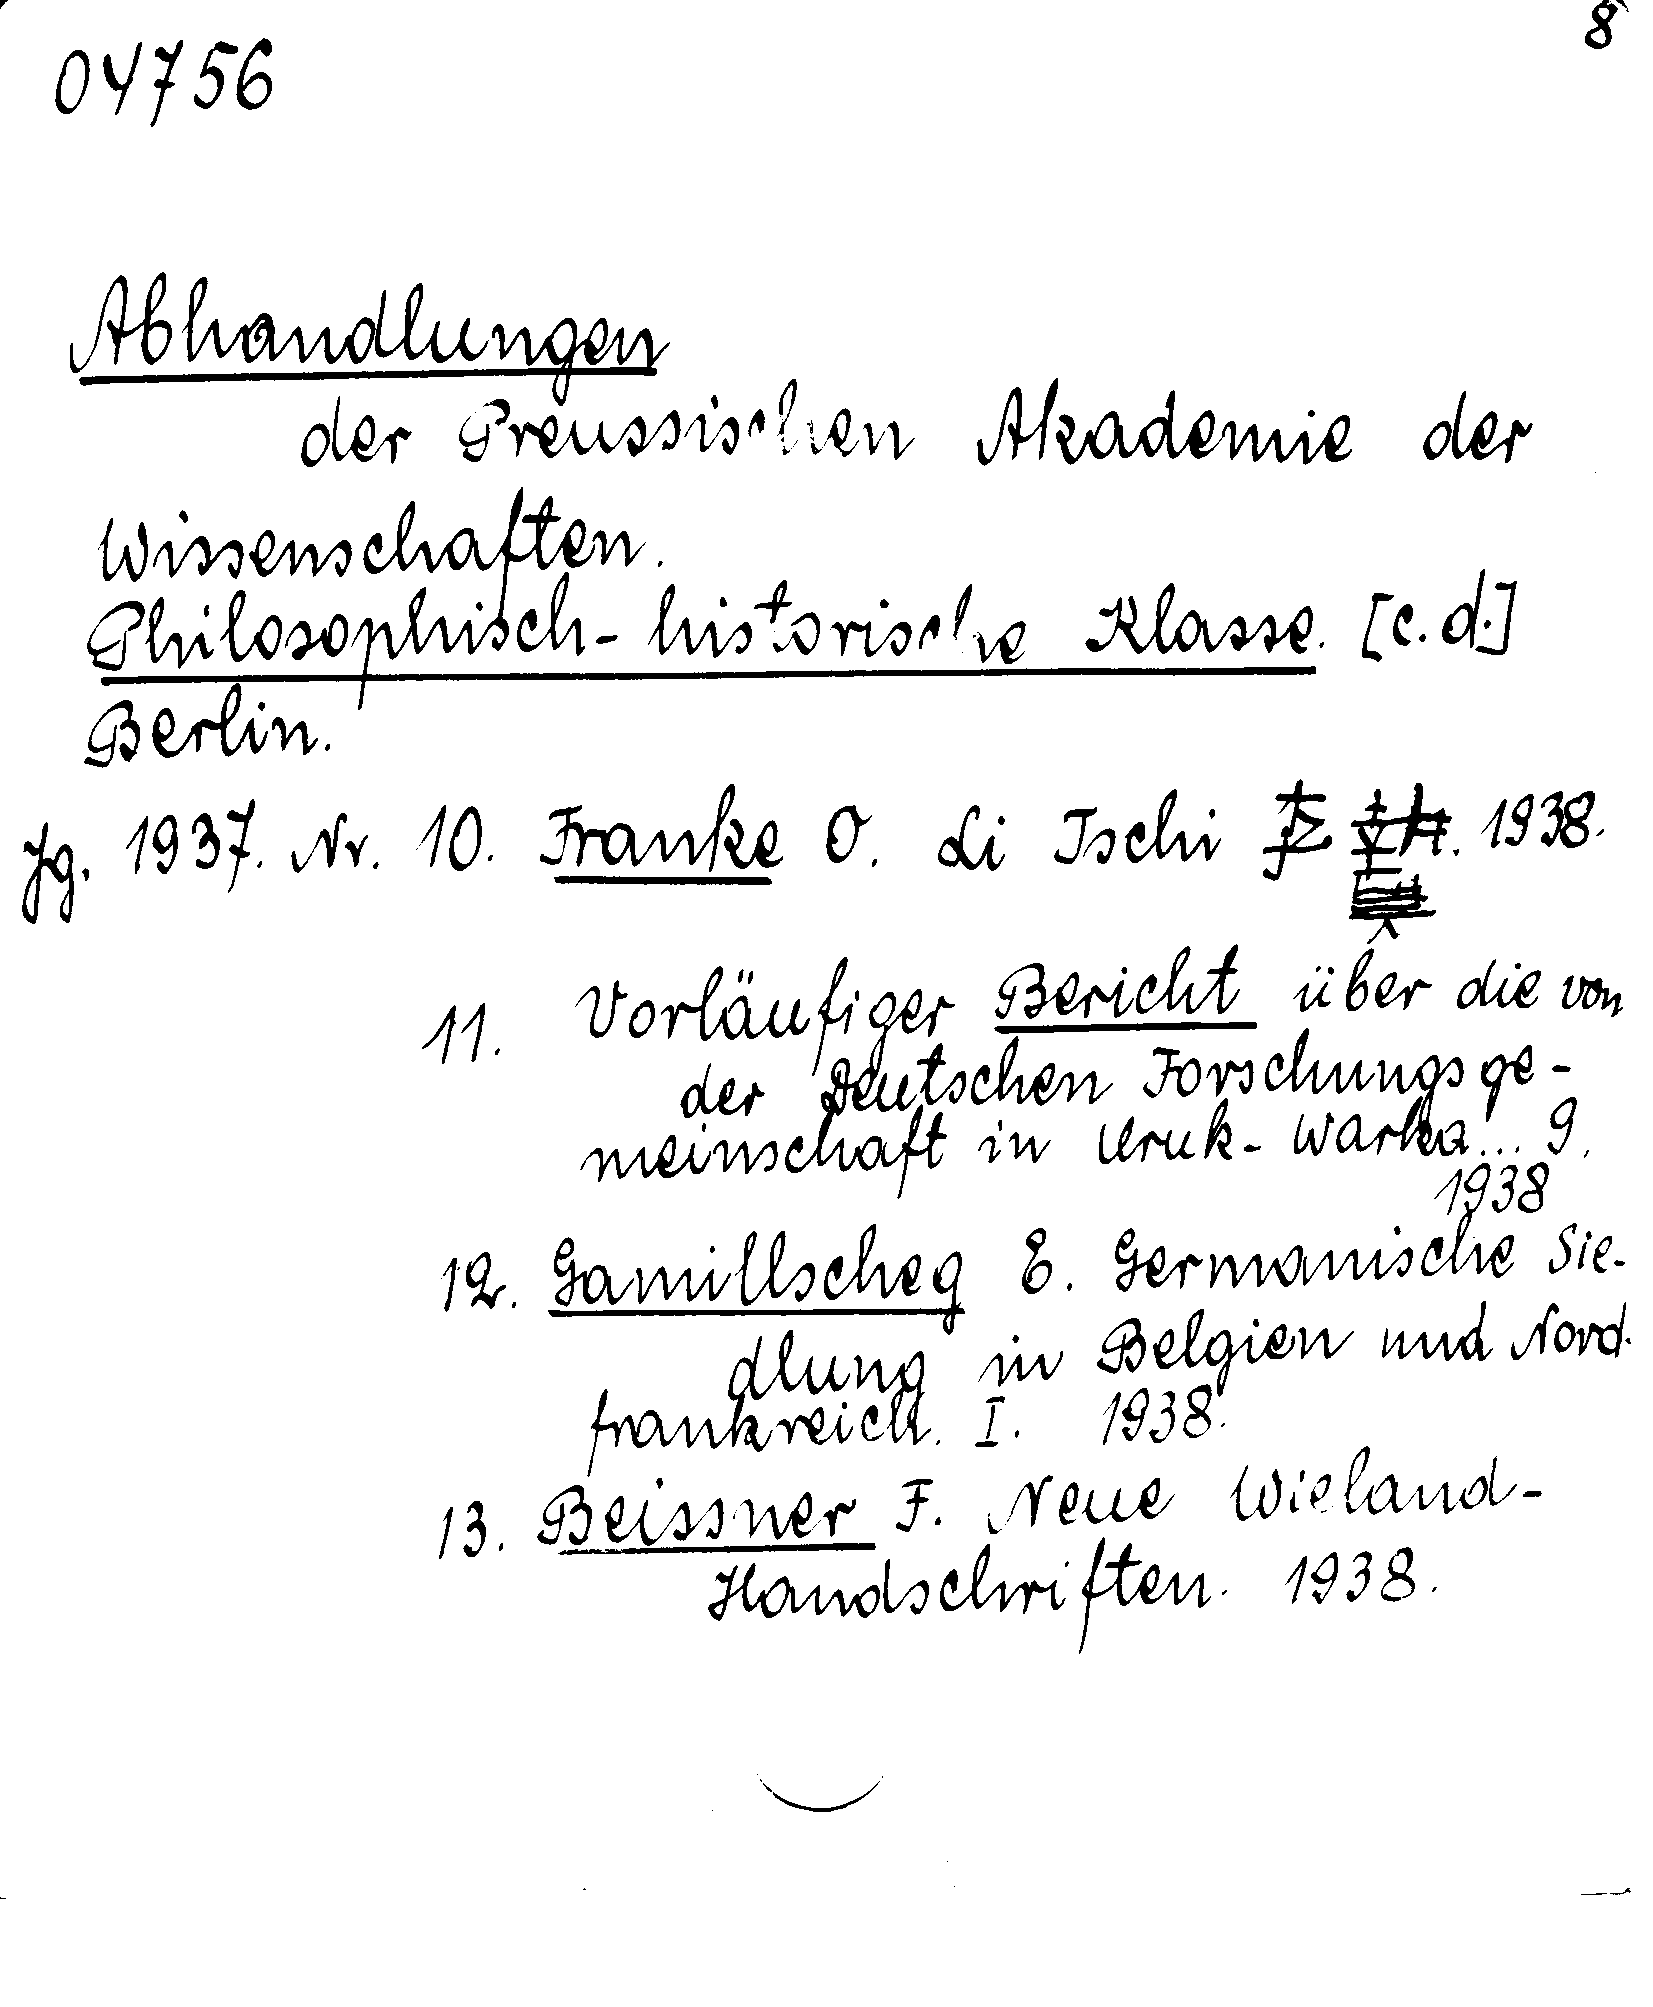 8
04756
Abhandlungen
der Preussischen Akademie der
Wissenschaften.
Philosophisch-historische Klasse. [c.d.]
Berlin.
Jg. 1937. Nr. 10. Franke O. Li Tschi 1938.
11. Vorläufiger Bericht über die von
der Deutschen Forschungsge-
meinschaft in Uruk-Warka... 9.
1938
12. Gamillscheg E. Germanische Sie-
dlung in Belgien und Nord-
frankreich. I. 1938.
13. Beissner F. Neue Wieland-
Handschriften. 1938.